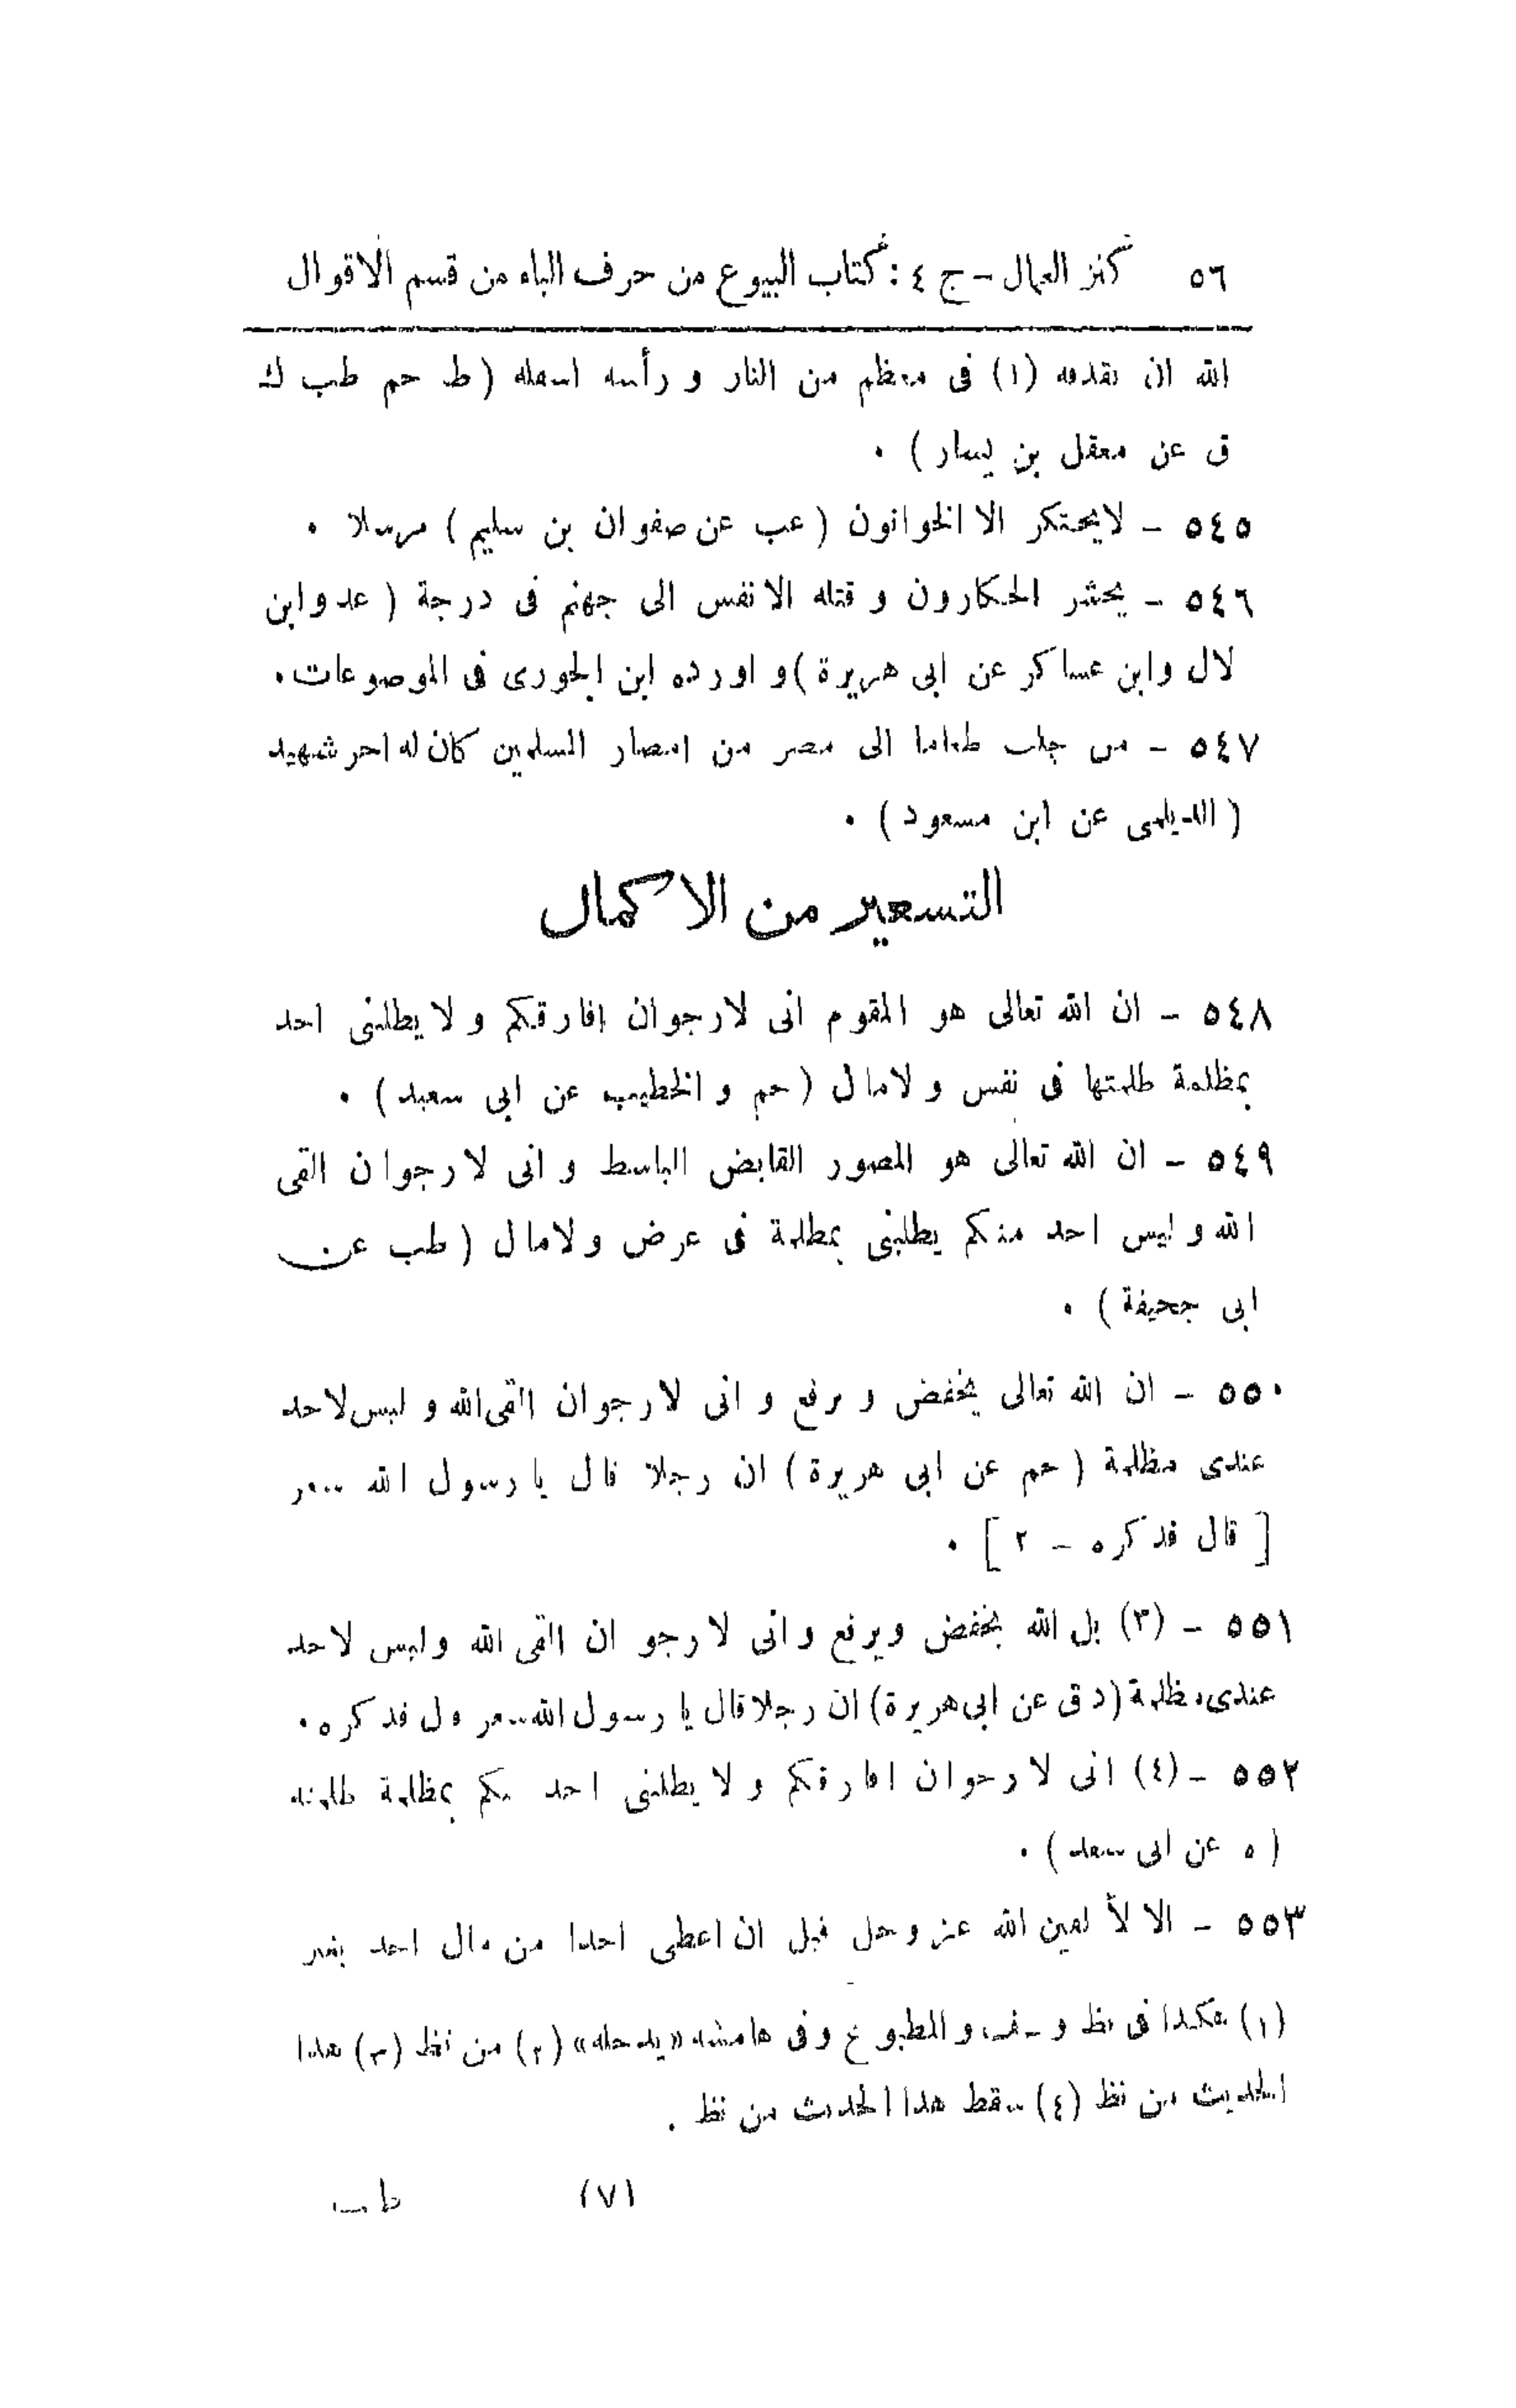 ٥٦ كنز العمال - ج ٤ : كتاب البيوع من حرف الباء من قسم الاقوال
الله ان يقذفه (١) فى معظم من النار و رأسه اسفله ( ط حم طب ك
ق عن معقل بن يسار ) .
٥٤٥ - لايحتكر الا الخوانون ( عب عن صفوان بن سليم ) مرسلا .
٥٤٦ - يحشر الحكارون و قتله الانفس الى جهنم فى درجة ( عد وابن
لال وابن عساكر عن ابى هريرة ) و اورده ابن الجوزى فى الموضوعات .
٥٤٧ - من جلب طعاما الى مصر من امصار المسلمين كان له اجر شهيد
( الديلمى عن ابن مسعود ) .
التسعير من الاكمال
٥٤٨ - ان الله تعالى هو المقوم انى لارجوان افارقكم و لايطلبنى احد
بمظلمة ظلمتها فى نفس و لامال ( حم و الخطيب عن ابى سعيد ) .
٥٤٩ - ان الله تعالى هو المصور القابض الباسط و انى لارجوان القى
الله و ليس احد منكم يطلبنى بمظلمة فى عرض و لامال ( طب عن
ابى جحيفة ) .
٥٥٠ - ان الله تعالى يخفض و يرفع و انى لارجوان القى الله و ليس لاحد
عندى مظلمة ( حم عن ابى هريرة ) ان رجلا قال يا رسول الله سعر
[ قال فذكره - ٢ ] .
٥٥١ - (٣) بل الله يخفض ويرفع وانى لارجو ان القى الله وليس لاحد
عندى مظلمة ( د ق عن ابى هريرة ) ان رجلا قال يا رسول الله سعر قال فذكره .
٥٥٢ - (٤) انى لارجوان افارقكم و لايطلبنى احد منكم بمظلمة ظلمته
( ه عن ابى سعيد ) .
٥٥٣ - الا لألقين الله عز وجل قبل ان اعطى احدا من مال احد بغير
(١) هكذا فى نظ و صف و المطبوع وفى هامشه «يدخله» (٢) من نظ (٣) هذا
الحديث من نظ (٤) سقط هذا الحديث من نظ .
(٧) طيب